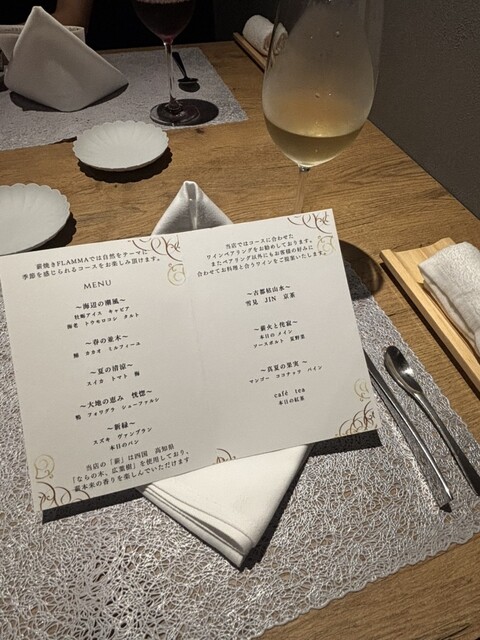 薪焼きFLAMMAでは自然をテーマに
季節を感じられるコースをお楽しみ頂けます。
MENU
〜海辺の潮風〜
牡蠣アイス キャビア
海老 トウモロコシ タルト
〜春の並木〜
鰆 カカオ ミルフィーユ
〜夏の清涼〜
スイカ トマト 梅
〜大地の恵み 恍惚〜
鴨 フォワグラ シューファルシ
〜新緑〜
スズキ ヴァンブラン
本日のパン
当店の「薪」は四国 高知県
「ならの木、広葉樹」を使用しており、
薪本来の香りを楽しんでいただけます
当店ではコースに合わせた
ワインペアリングをお勧めしております。
またペアリング以外にもお客様の好みに
合わせてお料理と合うワインをご提案いたします。
〜古都枯山水〜
雪見 JIN 京茶
〜薪火と侘寂〜
本日の メイン
ソースポルト 夏野菜
〜真夏の果実 〜
マンゴー ココナッツ パイン
café tea
本日の紅茶